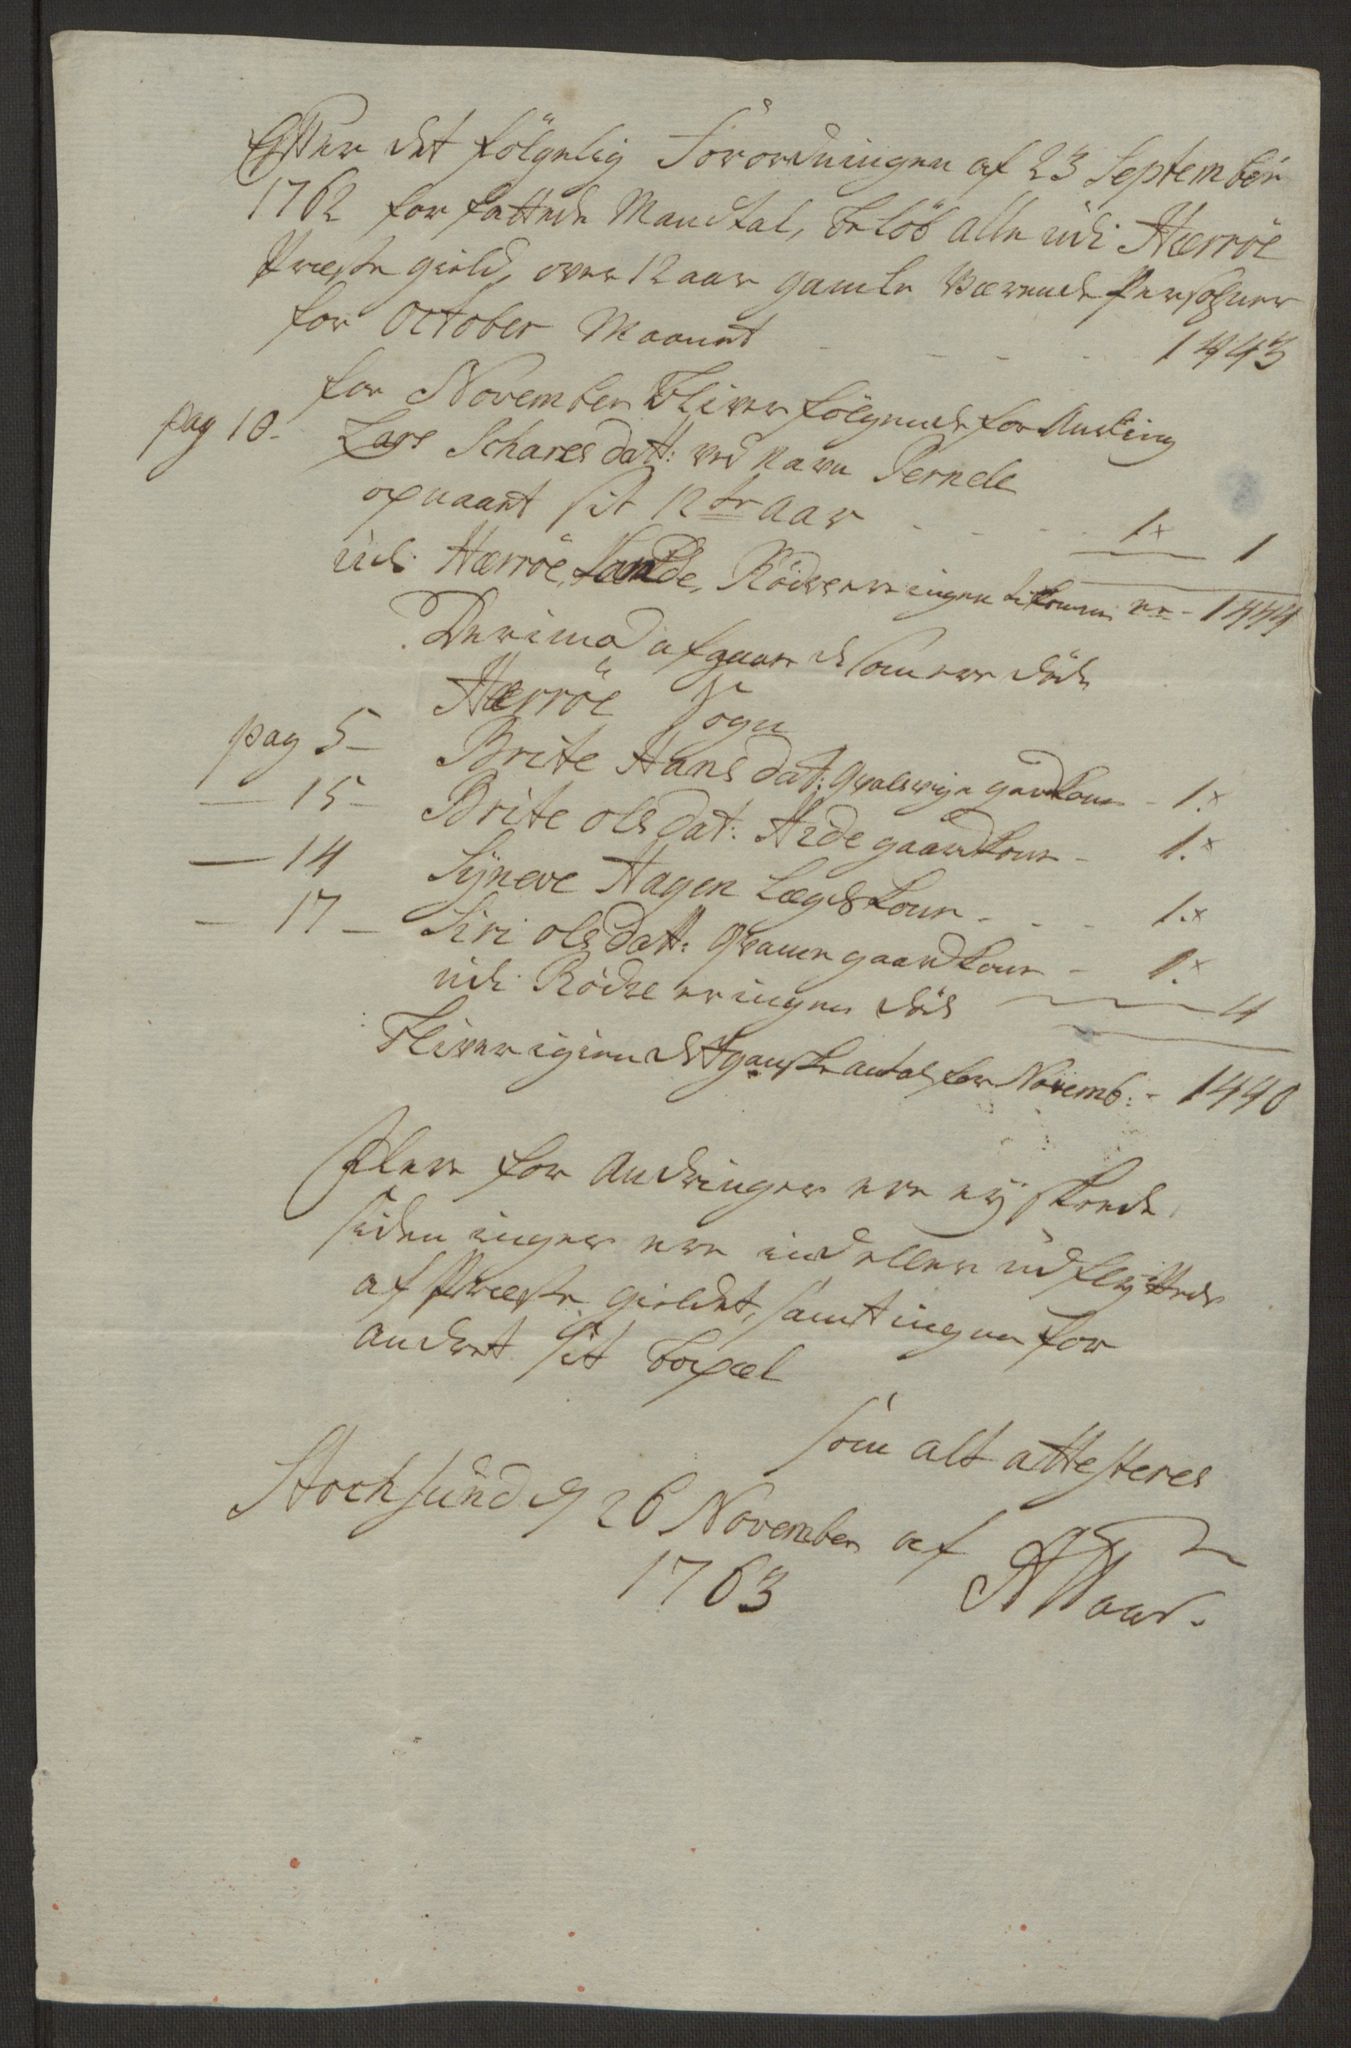 Efter det fölgelig Forordningen af 23 September
1762 forfattede Mandtal, beløb alle udi Herröe
Præste gield, over 12 aar gamle værende Persohner
for October Maanet - - - 1443
for November bliver fölgende forandring
pag 10. Lars Schares dat: ved navn Pernele
opnaaet sit 12te Aar - - - 1.x 1
udi Herröe, Sande, Rödse er ingen tilkommen - 1444
Derimod afgaar de som ere döde
Herröe Sogn
pag 5 - Brite Hans dat: gaardkone - 1.x
— 15 - Brite ols dat: gaardkone - 1.x
— 14 Syneve Hagen Lægdskone - - 1.x
— 17 - Siri ols datt: gaardkone - 1.x
udi Rödse er ingen död 4
bliver igien det ganske antal for Novemb: - 1440
Flere forandringer ere ey skeede,
siden ingen ere ind eller udflyttede
af Præste gieldet, samt ingen for
andret sit bopæl
Som alt attesteres
Stochsund d 26 November af
1763